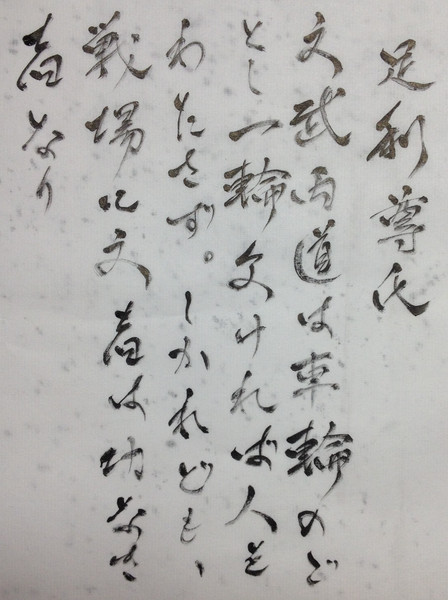 足利尊氏
文武両道は車輪のご
とし一輪欠ければ人を
わたさず。しかれども、
戦場に文者は功なき
者なり